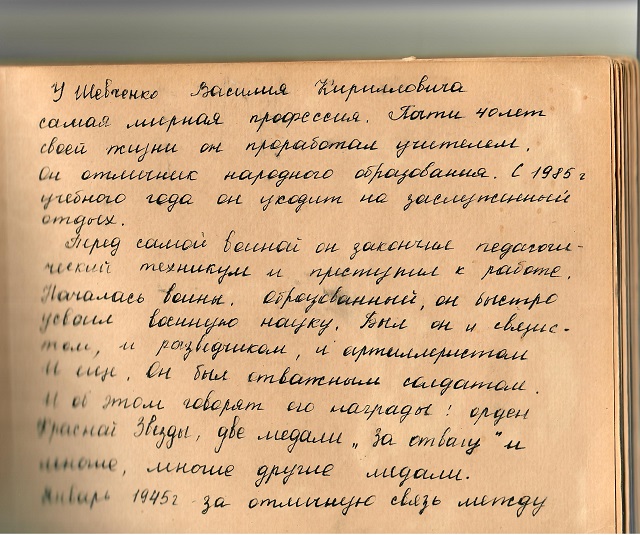 У Шевченко Василия Кирилловича
самая мирная профессия. Почти 40 лет
своей жизни он проработал учителем.
Он отличник народного образования. С 1985 г
учебного года он уходит на заслуженный
отдых.
Перед самой войной он закончил педагоги-
ческий техникум и приступил к работе.
Началась война. Образованный, он быстро
усвоил военную науку. Был он и связис-
том, и разведчиком, и артиллеристом
И еще, Он был отважным солдатом.
И об этом говорят его награды: орден
Красной Звезды, две медали „За отвагу" и
многие, многие другие медали.
Январь 1945 г за отличную связь между